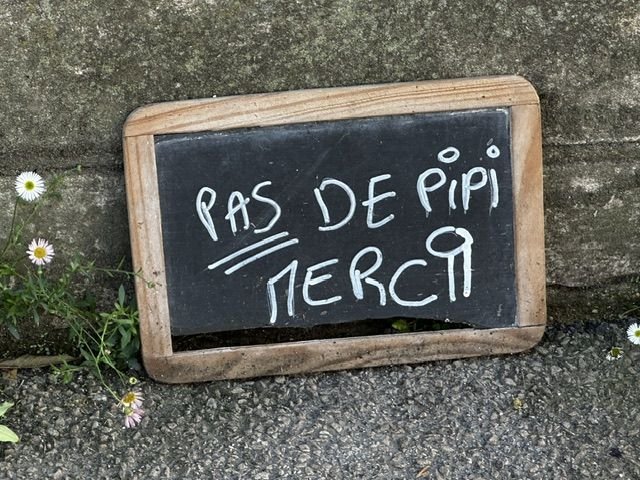 PAS DE PiPi
MERCi